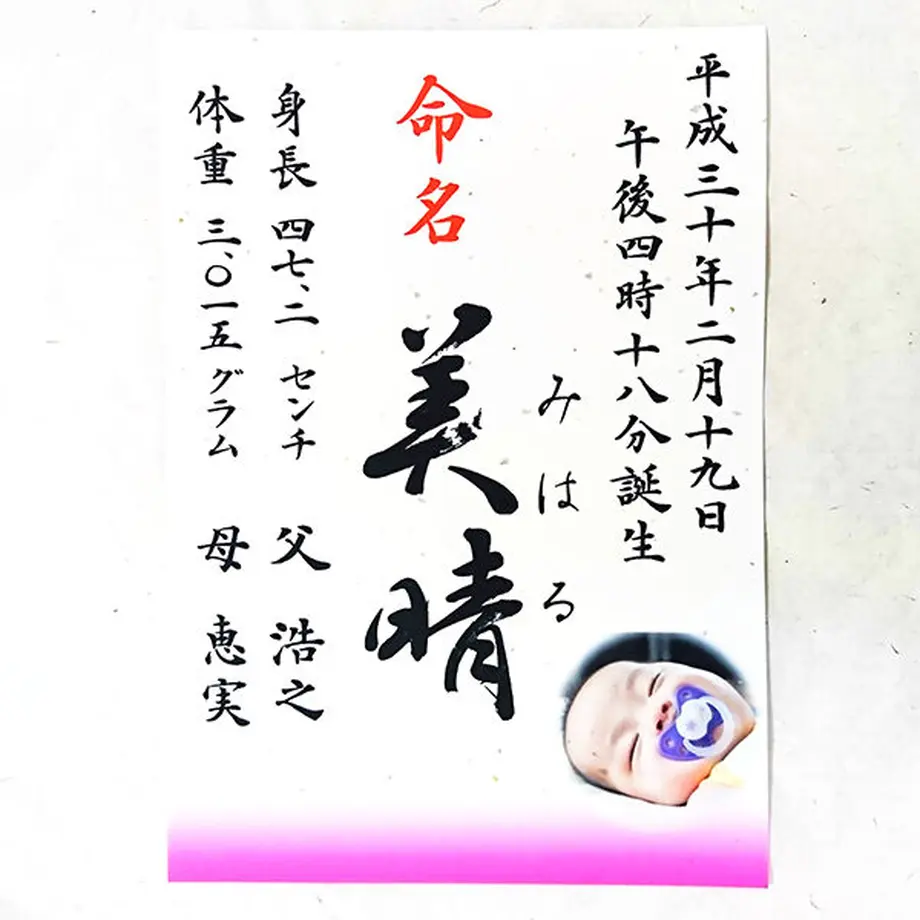 平成三十年二月十九日
午後四時十八分誕生
みはる
命名 美晴
身長 四七、二 センチ 父 浩之
体重 三、〇一五 グラム 母 恵実